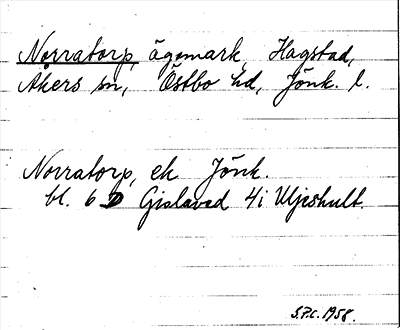 Norratorp, ägomark, Hagstad,
Åkers sn, Östbo hd, Jönk. l.
Norratorp, ek Jönk.
bl. 6 D Gislaved 4i Uljeshult.
S.P.C. 1958.